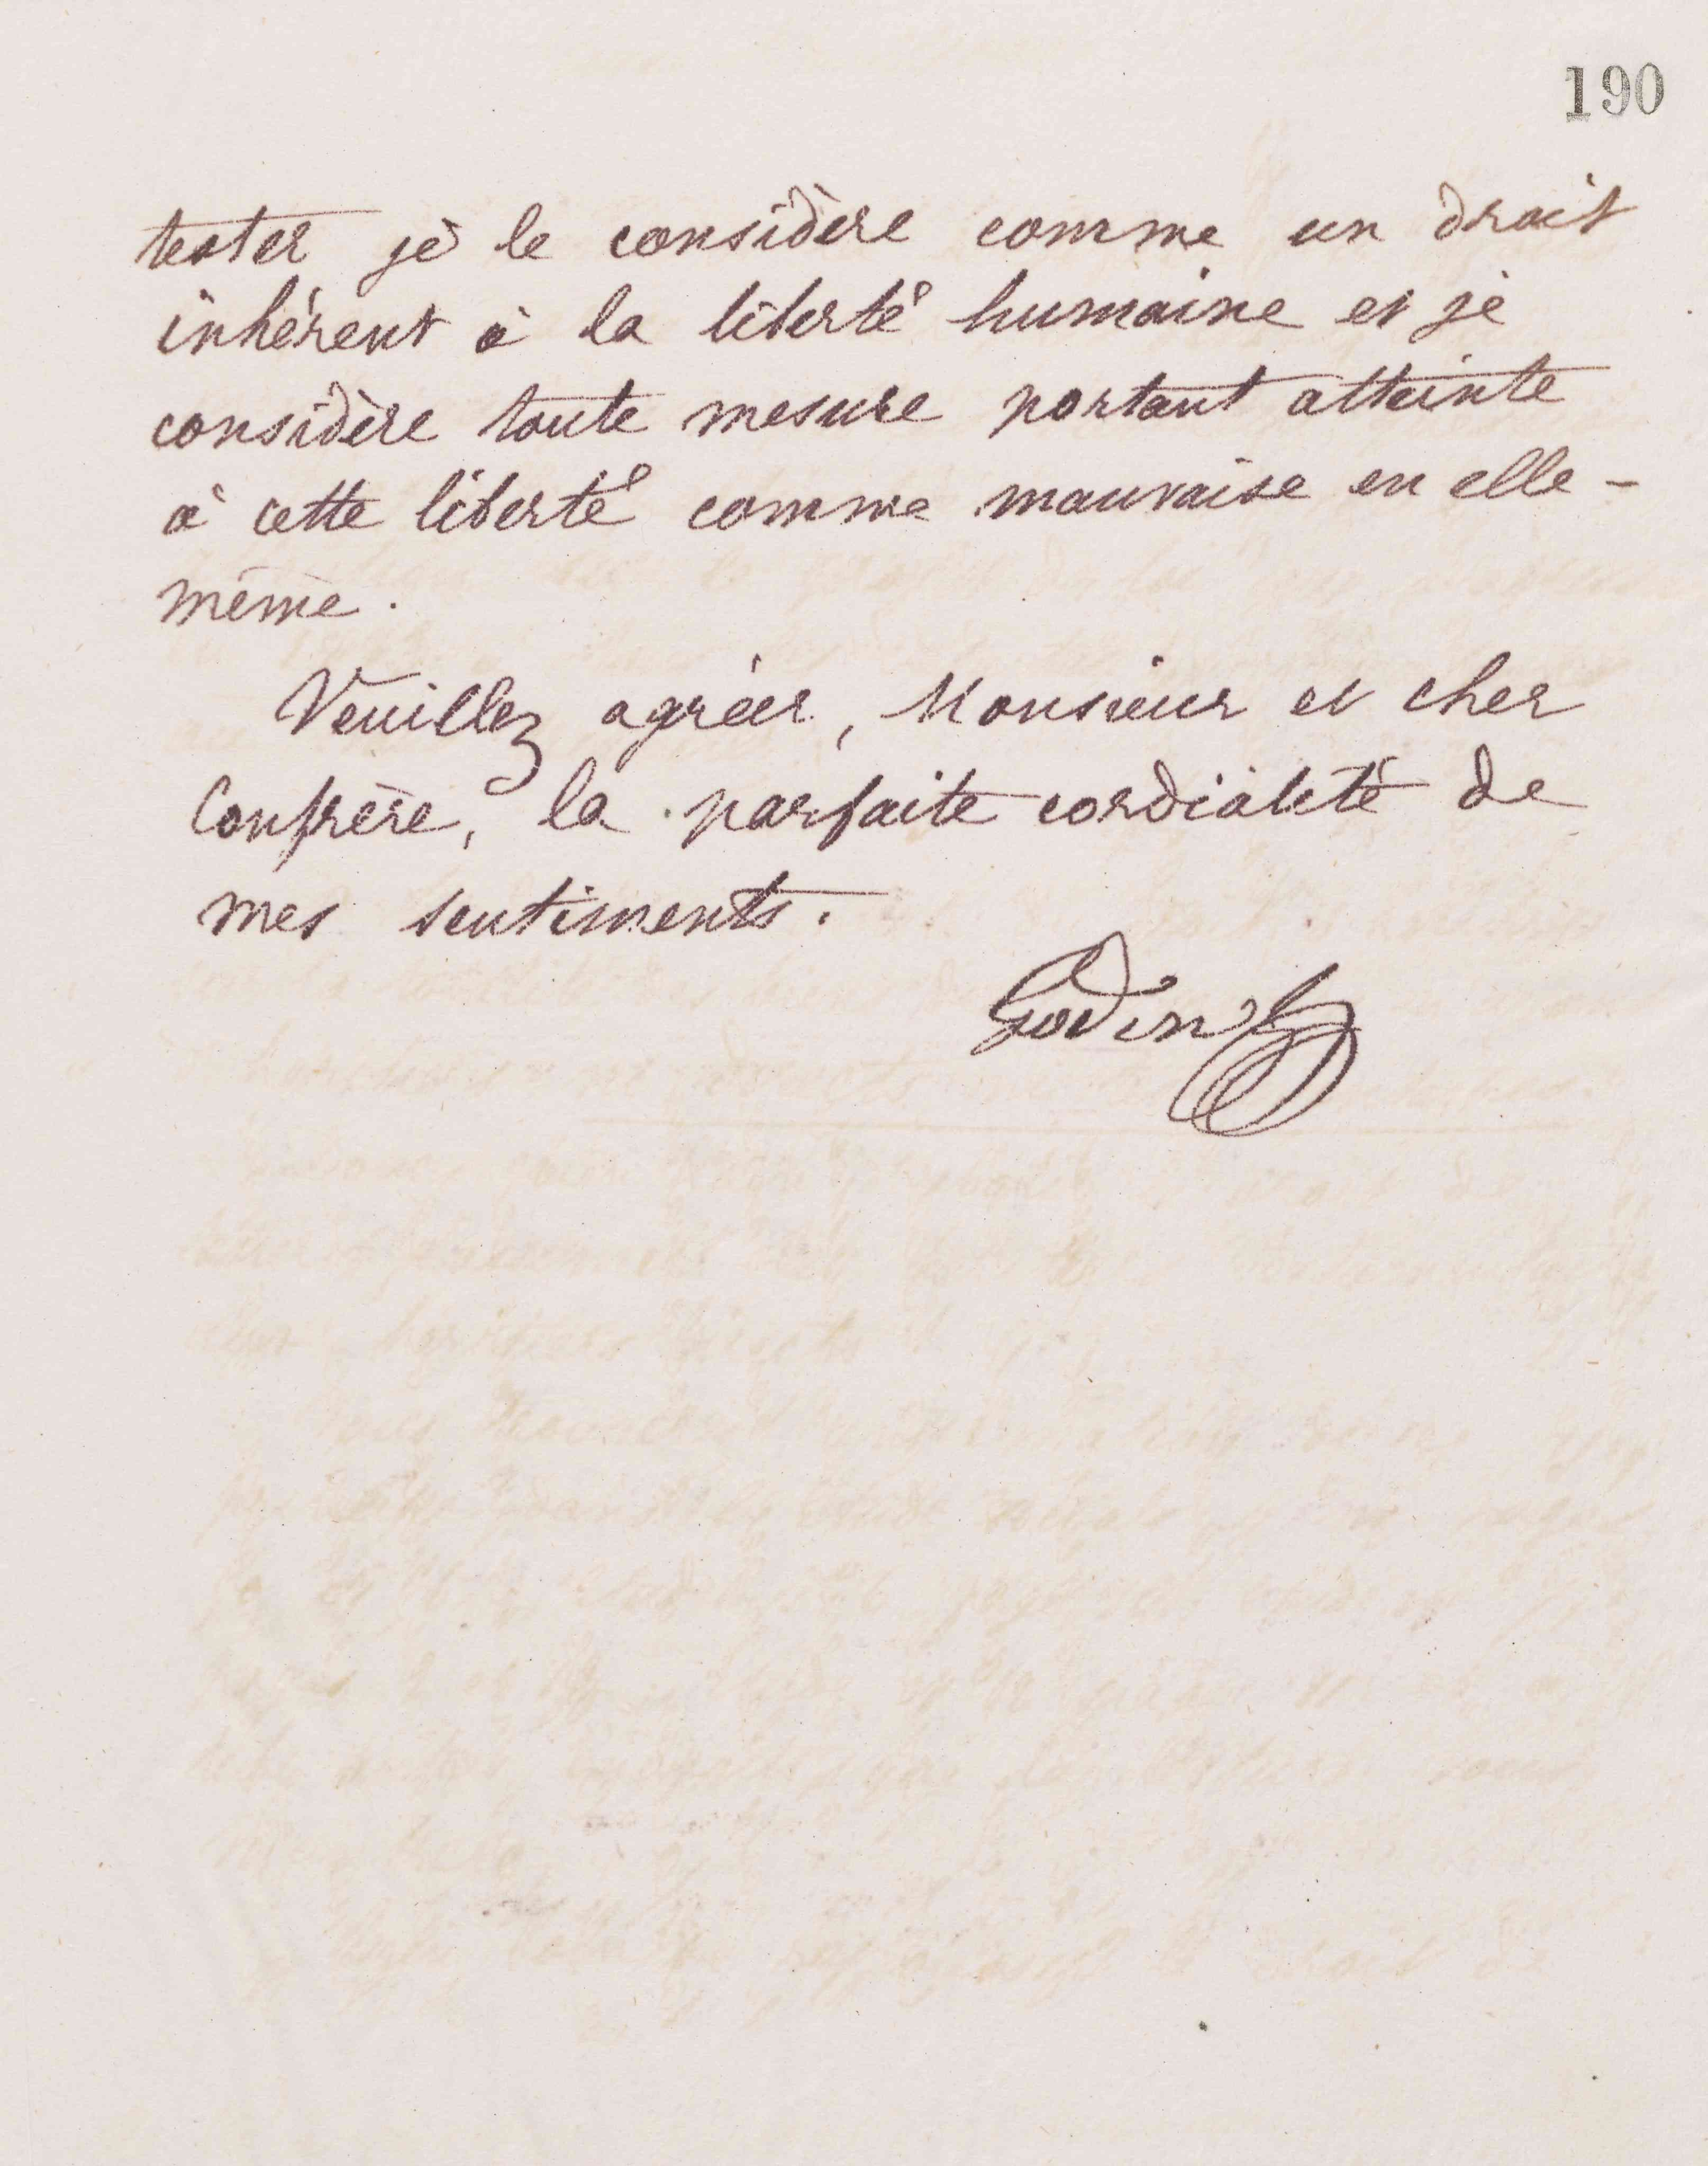 190
tester je le considère comme un droit
inhérent à la liberté humaine et je
considère toute mesure portant atteinte
à cette liberté comme mauvaise en elle-
même.
Veuillez agréer, Monsieur et cher
Confrère, la parfaite cordialité de
mes sentiments.
Godin